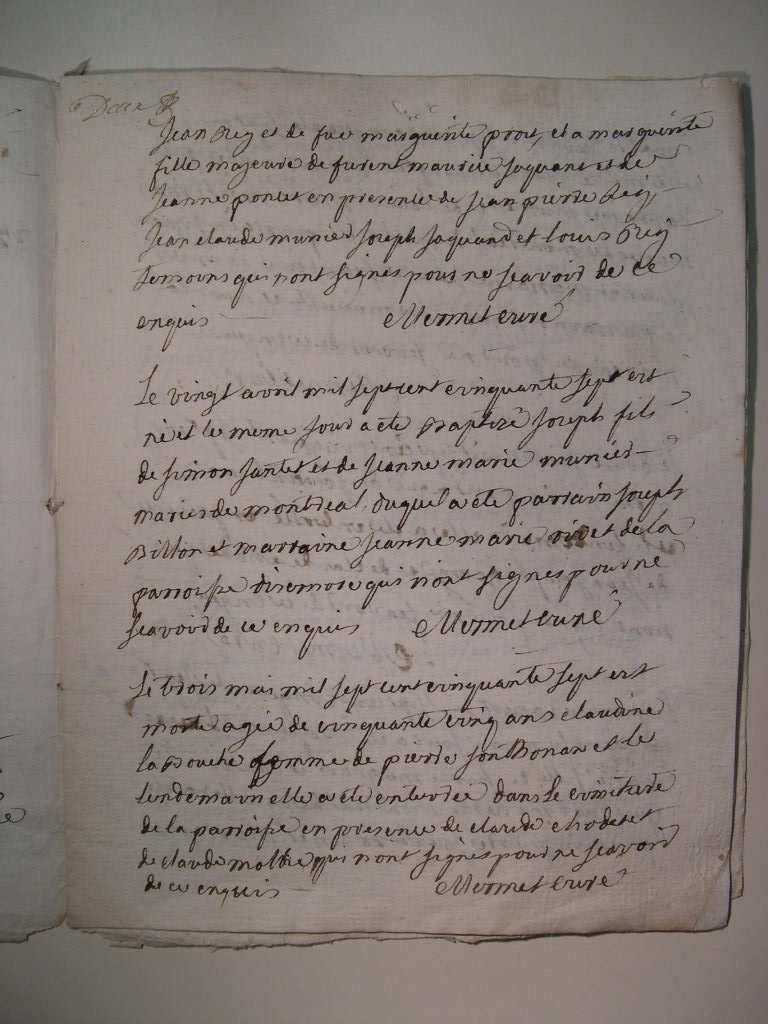 Jean Rey et de feue marguerite prost, et a marguerite
fille majeure de furent maurice Jaquand et de
Jeanne poncet en presence de Jean pierre Rey,
Jean claude munier Joseph Jaquand et Louis Rey
temoins qui n'ont signes pour ne scavoir de ce
enquis Mermet curé
Le vingt avril mil sept cent cinquante sept est
né et le meme jour a ete Baptizé Joseph fils
de simon Jantet et de Jeanne marie munier
maries de montreal, duquel a ete parrain Joseph
Billon et marraine Jeanne marie rivet de la
parroisse disernore qui n'ont signes pour ne
scavoir de ce enquis Mermet curé
Le trois mai mil sept cent cinquante sept est
morte agée de cinquante cinq ans claudine
la Bouche femme de pierre Jon Bonan et le
lendemain elle a ete enterrée dans le cimitiere
de la parroisse en presence de claude chodetet
de claude molthe qui n'ont signes pour ne scavoir
de ce enquis Mermet curé